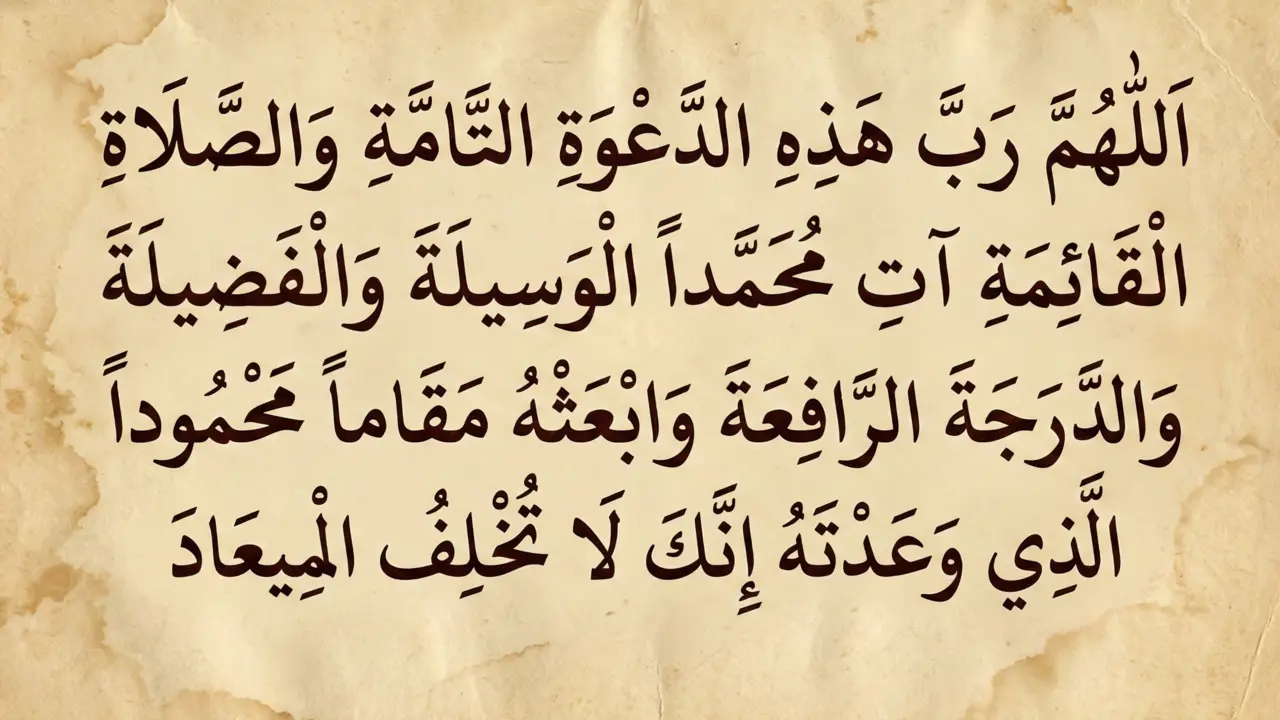 اَللّٰهُمَّ رَبَّ هَذِهِ الدَّعْوَةِ التَّامَّةِ وَالصَّلَاةِ
الْقَائِمَةِ آتِ مُحَمَّداً الْوَسِيلَةَ وَالْفَضِيلَةَ
وَالدَّرَجَةَ الرَّافِعَةَ وَابْعَثْهُ مَقَاماً مَحْمُوداً
الَّذِي وَعَدْتَهُ إِنَّكَ لَا تُخْلِفُ الْمِيعَادَ